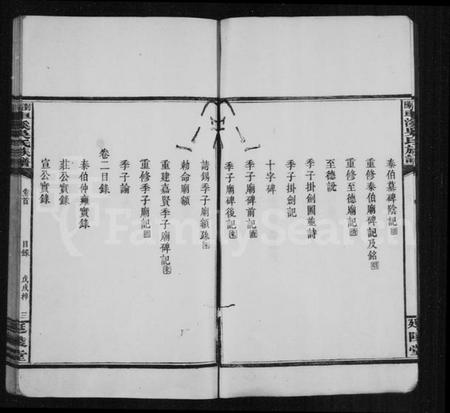 泰伯墓碑陰記
重修泰伯廟碑記及銘
重修至德廟記
至德說
季子掛劍圖並詩
季子掛劍記
十字碑
季子廟碑前記
季子廟碑後記
請錫季子廟額疏
勅命廟額
重建嘉賢季子廟碑記
重修季子廟記
季子論
卷二目錄
泰伯仲雍實錄
莊公實錄
宣公實錄
卷首 目錄 戊戌梓 三
FamilySearch